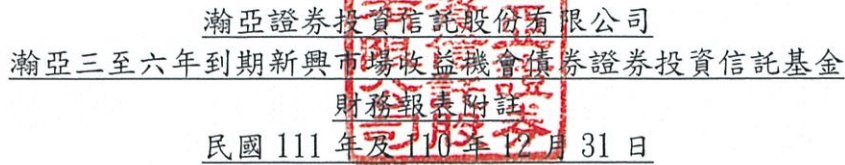 瀚亞證券投資信託股份有限公司
瀚亞三至六年到期新興市場收益機會債券證券投資信託基金
財務報表附註
民國 111 年及 110 年 12 月 31 日